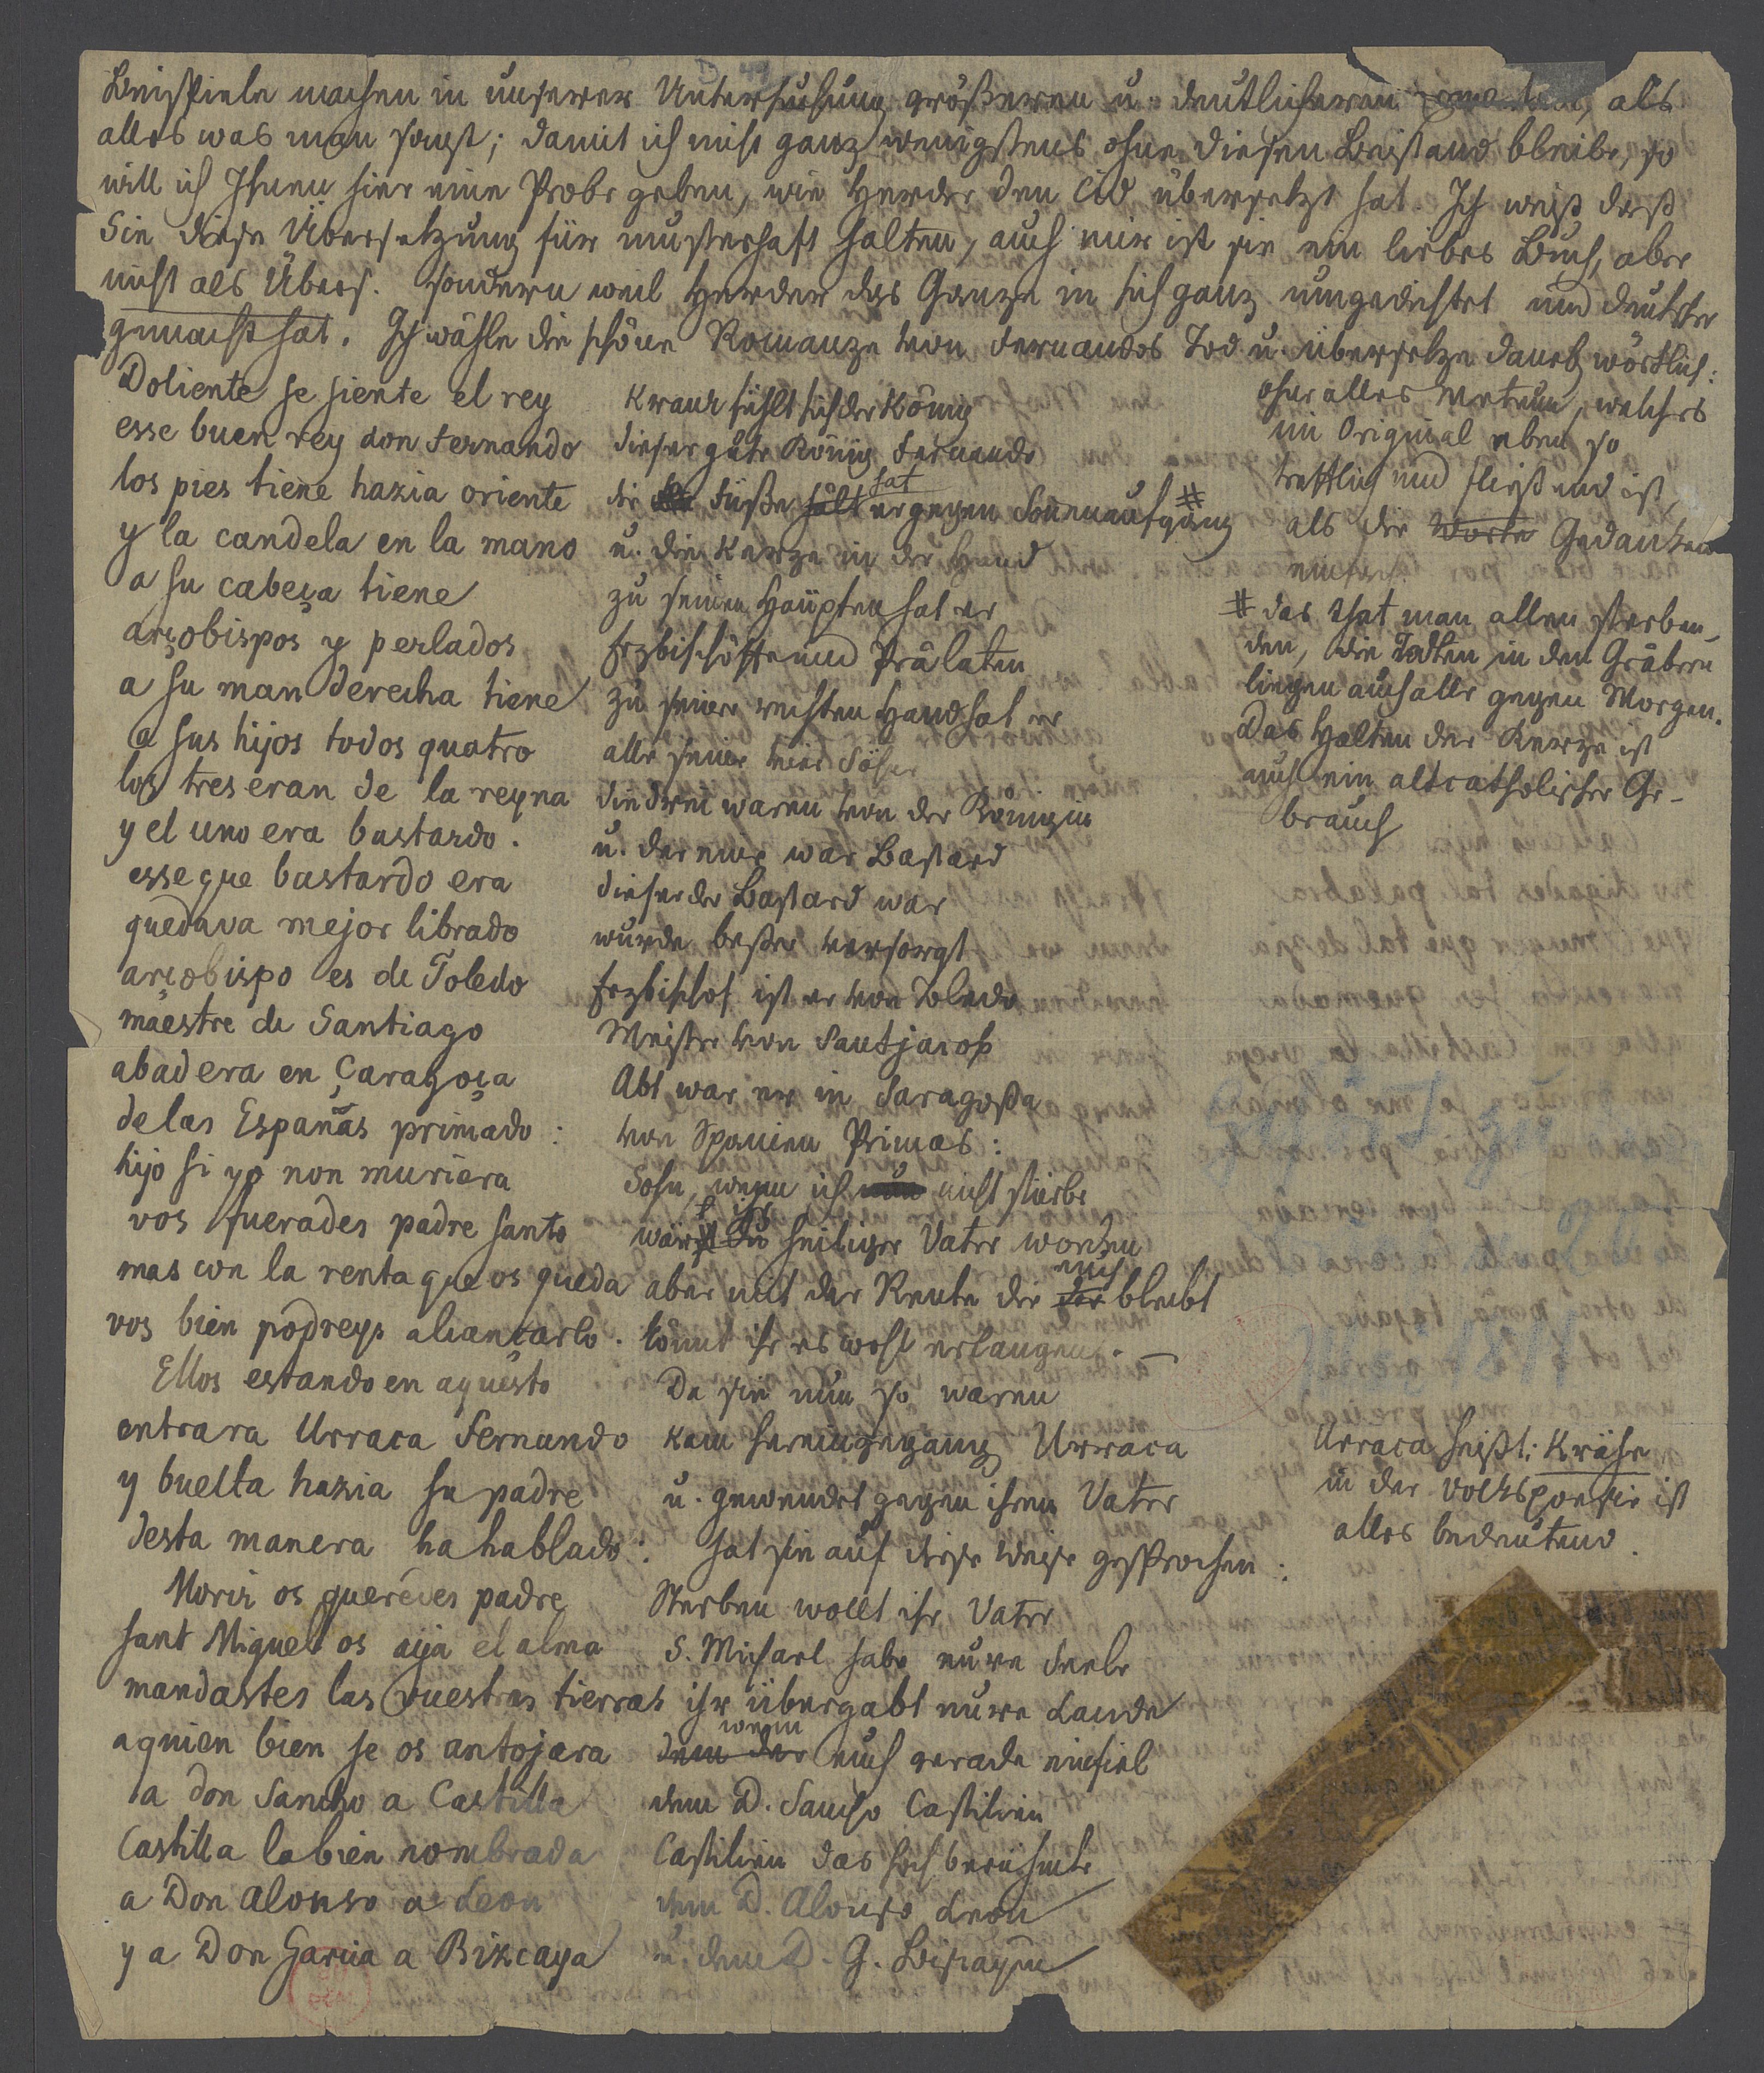 Beispiele machen in unserer Untersuchung größeren u. deutlicheren als
alles was man sagt; damit ich nicht ganz wenigstens ohne diesen Beistand bleibe, so
will ich Ihnen hier eine Probe geben, wie Herder den Cid übersetzt hat. Ich weiß daß
Sie diese Übersetzung für musterhaft halten, auch mir ist sie ein liebes Buch, aber
nicht als Übers. sondern weil Herder das Ganze in sich ganz umgedichtet und deutscher
gemacht hat. Ich wähle die schöne Romanze von Fernandos Tod u. übersetze daneb. wörtlich:
Doliente se siente el rey
esse buen rey don Fernando
los pies tiene hazia oriente
y la candela en la mano
a su cabeça tiene
arçobispos y perlados
a su man derecha tiene
a sus hijos todos quatro
los tres eran de la reyna
y el uno era bastardo.
esse que bastardo era
quedava mejor librado
arçobispo es de Toledo
maestre de Santiago
abad era en Çaragoça
de las Españas primado:
hijo si yo non muriera
vos fuerades padre santo
mas con la renta que os queda
vos bien podreys alcançarlo.
Ellos estando en aquesto
entrara Urraca Fernando
y buelta hazia su padre
desta manera ha hablado:
Morir os queredes padre
sant Miguel os aya el alma
mandastes las vuestras tierras
a quien bien se os antojara
a don Sancho a Castilla
Castilla la bien nombrada
a Don Alonso a Leon
y a Don Garcia a Bizcaya
Kranck fühlt sich der König
dieser gute König Fernando
die Füße hält hat er gegen Sonnenaufgang #
u. die Kerze in der Hand
zu seinen Häupten hat er
Erzbischöffe und Prälaten
zu seiner rechten Hand hat er
alle seine vier Söhne
die drei waren von der Königin
u. der eine war Bastard
dieser der Bastard war
wurde beßer versorgt
Erzbischof ist er von Toledo
Meister von Sanctjacob
Abt war er in Saragoßa
von Spanien Primas:
Sohn, wenn ich nun nicht stürbe
wärst du t ihr heiliger Vater worden
aber mit der Rente die dir euch bleibt
könnt ihr es wohl erlangen. —
Da sie nun so waren
kam hereingegang Urraca
u. gewendet gegen ihren Vater
hat sie auf diese Weise gesprochen:
Sterben wollt ihr Vater
S. Michael habe eure Seele
ihr übergabt eure Lande
dem der wem euch gerade einfiel
dem D. Sancho Castilien
Castilien das hochberühmte
dem D. Alonso Leon
u. dem D. G. Biscayen
ohne alles Metrum, welches
im Original eben so
trefflich und fließend ist,
als die Worte Gedanken
einfach.
# das that man allen Sterben-
den, die Todten in den Gräbern
liegen auch alle gegen Morgen.
Das Halten der Kerze ist
auch ein altcatholischer Ge-
brauch
Urraca heißt: Krähe
in der Volkspoesie ist
alles bedeutend.